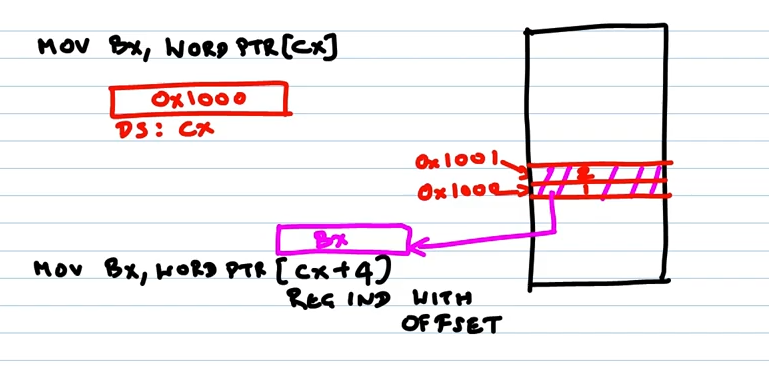 MOV BX, WORD PTR [CX]
0x1000
DS: CX
0x1001
2
0x1000
1
BX
MOV BX, WORD PTR [CX+4)
REG IND WITH
OFFSET